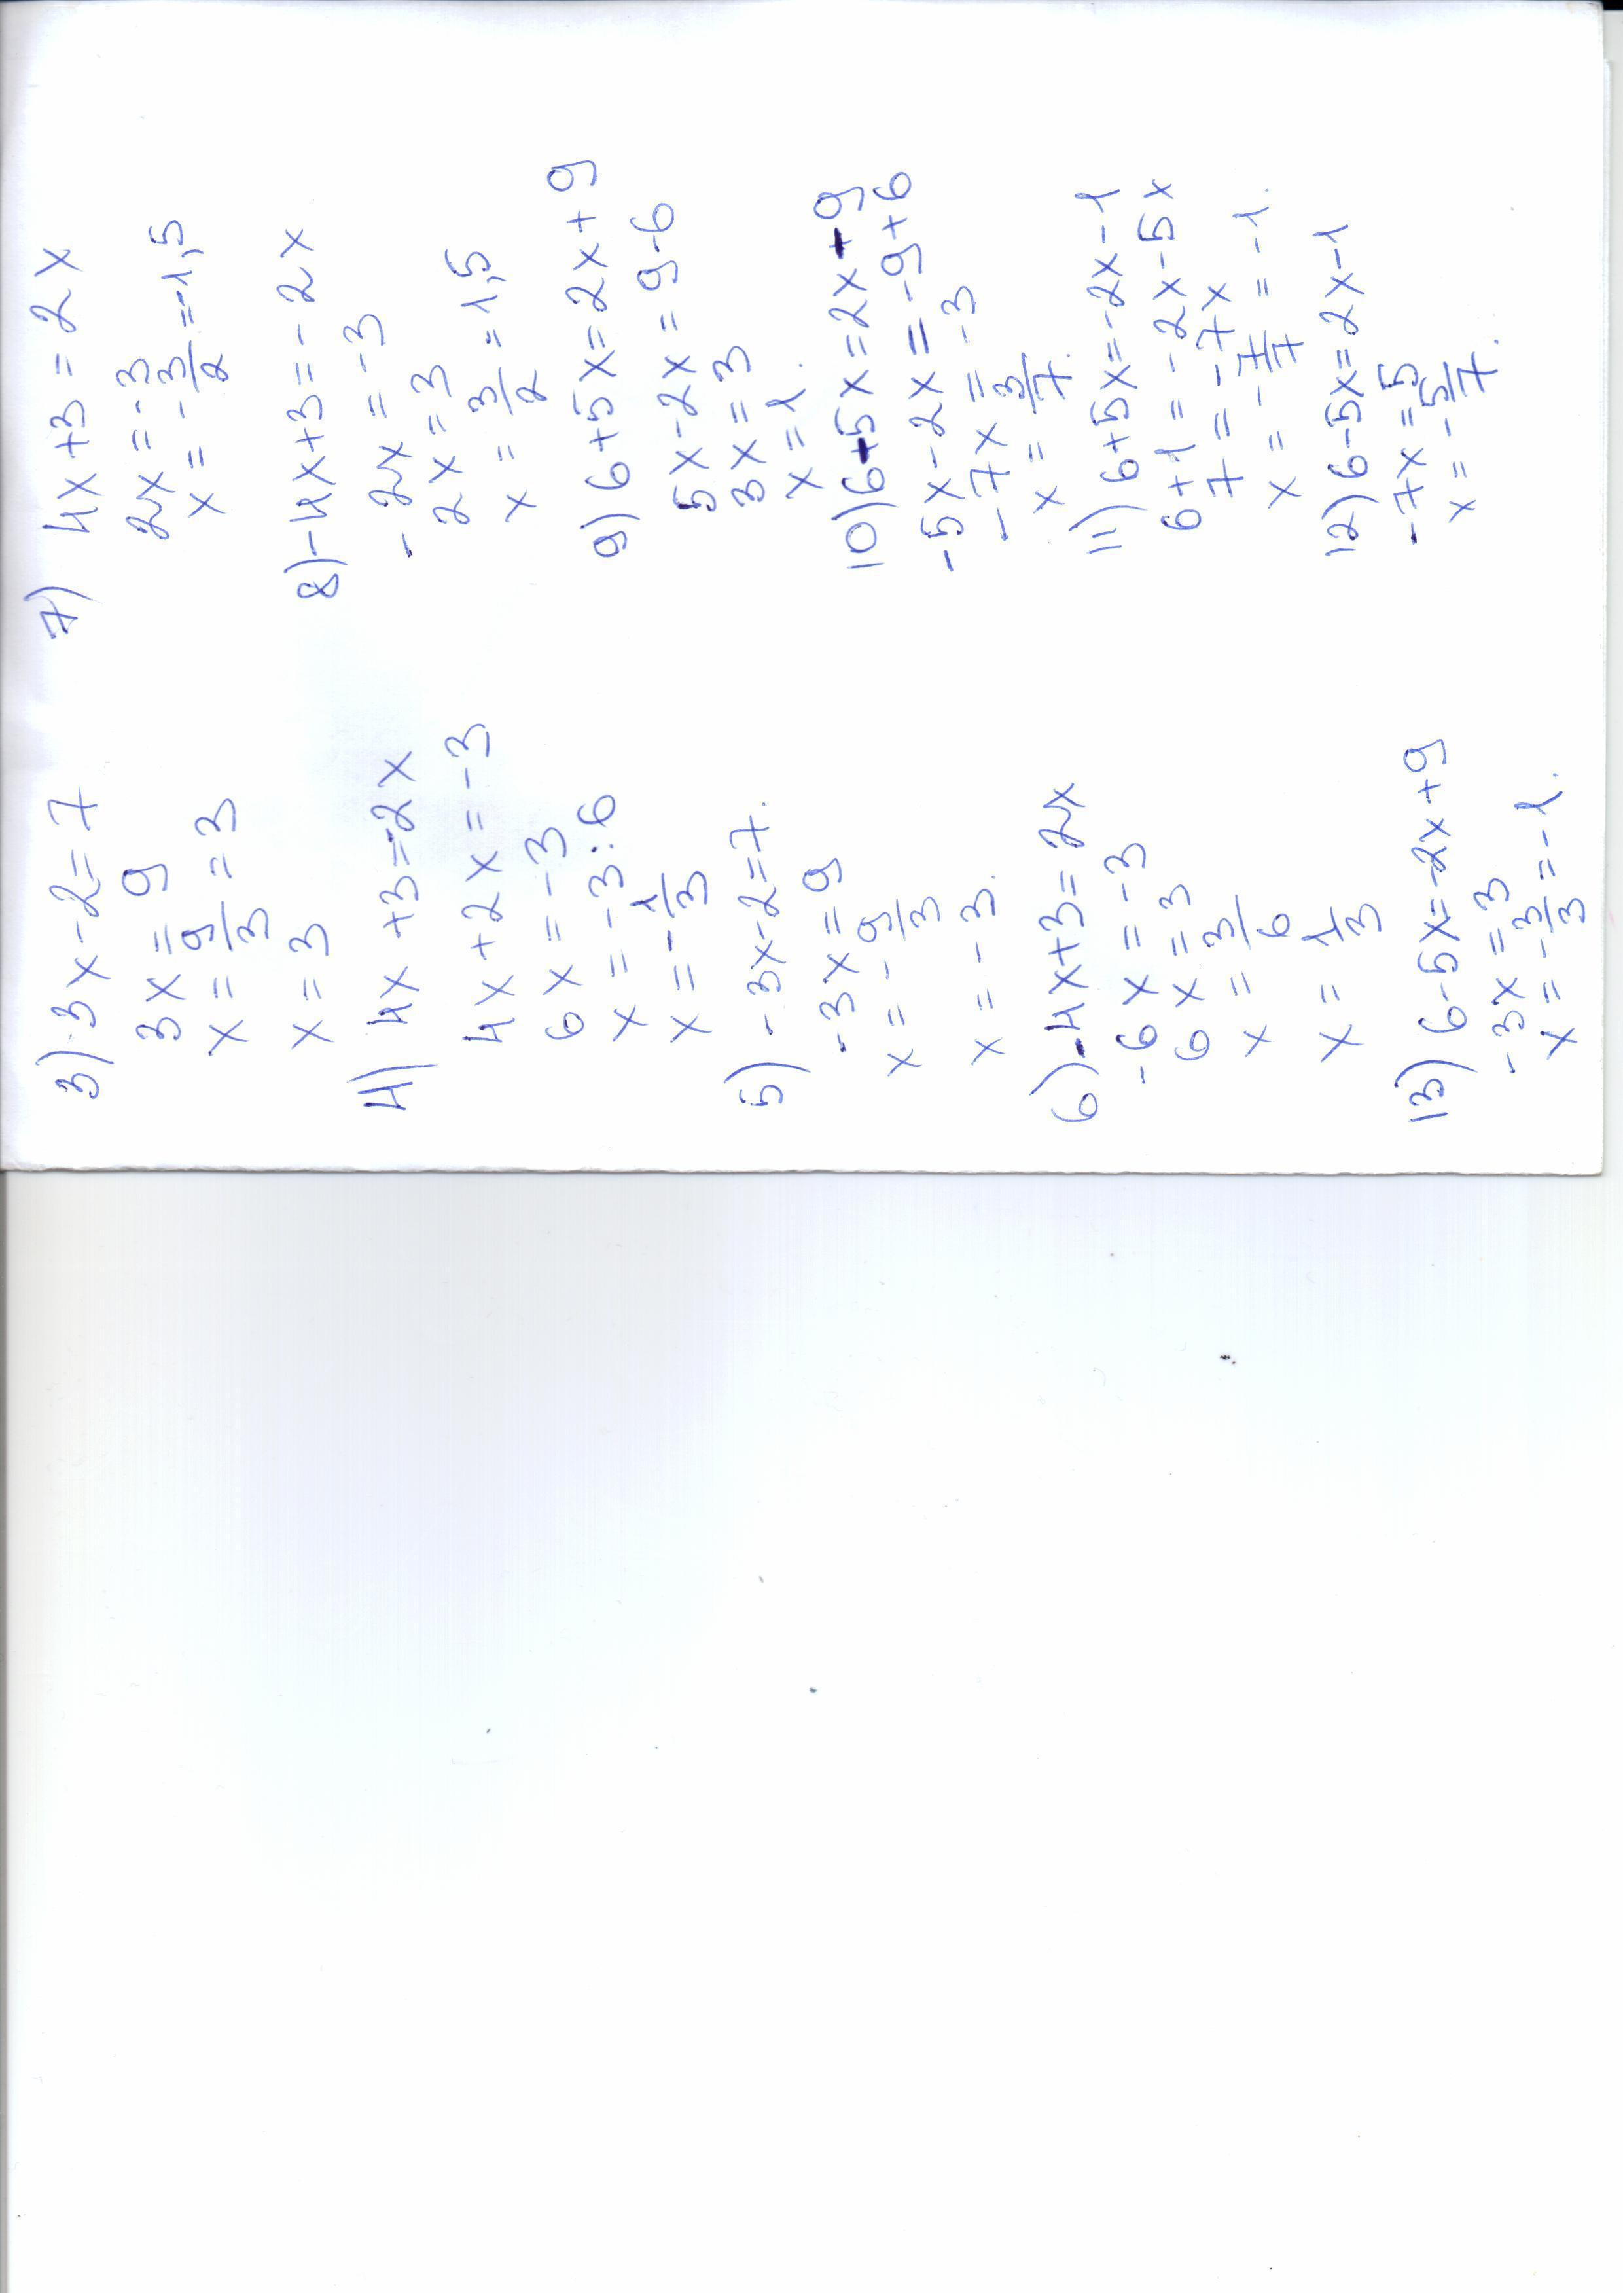 3) 3x-2=7
3x=9
x=9/3=3
x=3
4) 4x+3=-2x
4x+2x=-3
6x=-3
x=-3:6
x=-1/3
5) -3x-2=7.
-3x=9
x=-9/3
x=-3.
6) -4x+3=2x
-6x=-3
6x=3
x=3/6
x=1/3
13) 6-5x=-2x+9
-3x=3
x=-3/3=-1.
7) 4x+3=2x
2x=-3
x=-3/2=-1,5
8) -4x+3=-2x
-2x=-3
2x=3
x=3/2=1,5
9) 6+5x=2x+9
5x-2x=9-6
3x=3
x=1.
-5x-2x=-9+6
-7x=-3
x=3/7.
11) 6+5x=-2x-1
6+1=-2x-5x
7=-7x
x=-7/7=-1.
12) 6-5x=2x-1
-7x=5
x=-5/7.